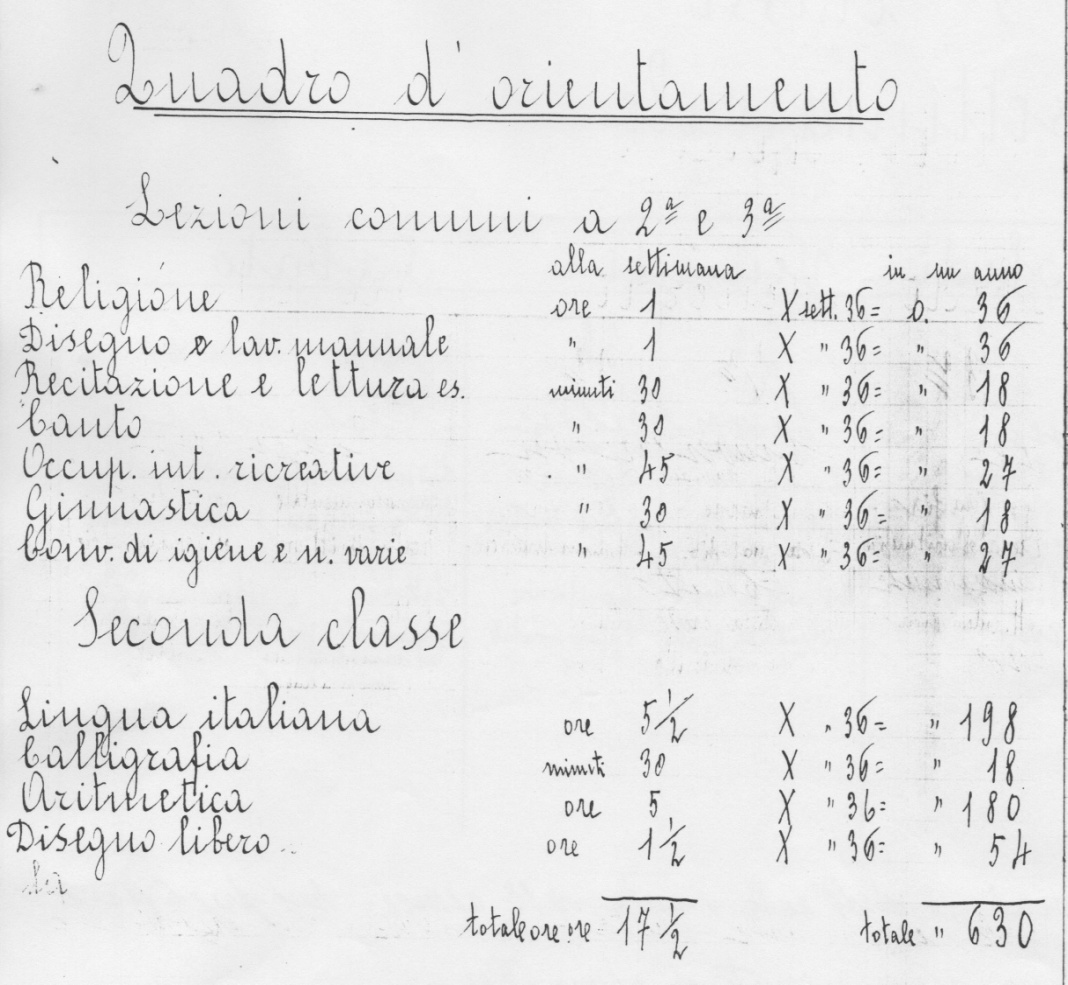 Quadro d'orientamento
Lezioni comuni a 2ª e 3ª
alla settimana in un anno
Religione ore 1 X sett. 36 = o. 36
Disegno e lav. manuale " 1 X " 36 = " 36
Recitazione e lettura es. minuti 30 X " 36 = " 18
Canto " 30 X " 36 = " 18
Occup. int. ricreative " 45 X " 36 = " 27
Ginnastica " 30 X " 36 = " 18
Conv. di igiene e n. varie " 45 X " 36 = " 27
Seconda classe
Lingua italiana ore 5 1/2 X " 36 = " 198
Calligrafia minuti 30 X " 36 = " 18
Aritmetica ore 5 X " 36 = " 180
Disegno libero ore 1 1/2 X " 36 = " 54
totale ore ore 17 1/2 totale " 630